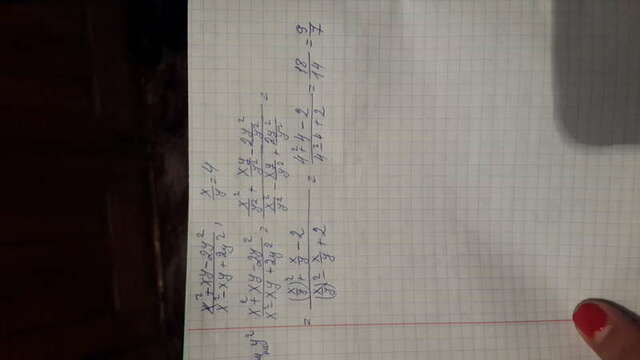 (x²+xy-2y²)/(x²-xy+2y²), x/y=4
y² (x²+xy-2y²)/(x²-xy+2y²) = (x²/y²+xy/y²-2y²/y²)/(x²/y²-xy/y²+2y²/y²) =
= ((x/y)²+x/y-2)/((x/y)²-x/y+2) = (4²+4-2)/(4²-4+2) = 18/14 = 9/7